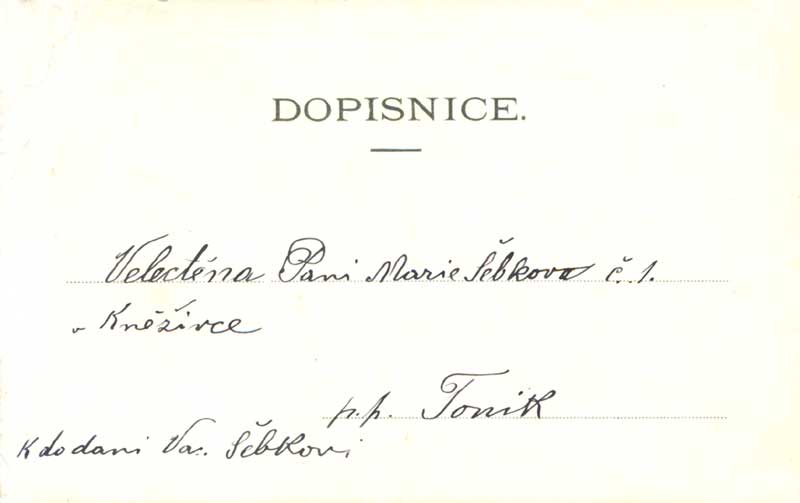 DOPISNICE.
Velectěna Pani Marie Šěbkova č. 1.
v Kněživce
p. p. Tonik
K dodani Va. Šěbkovi